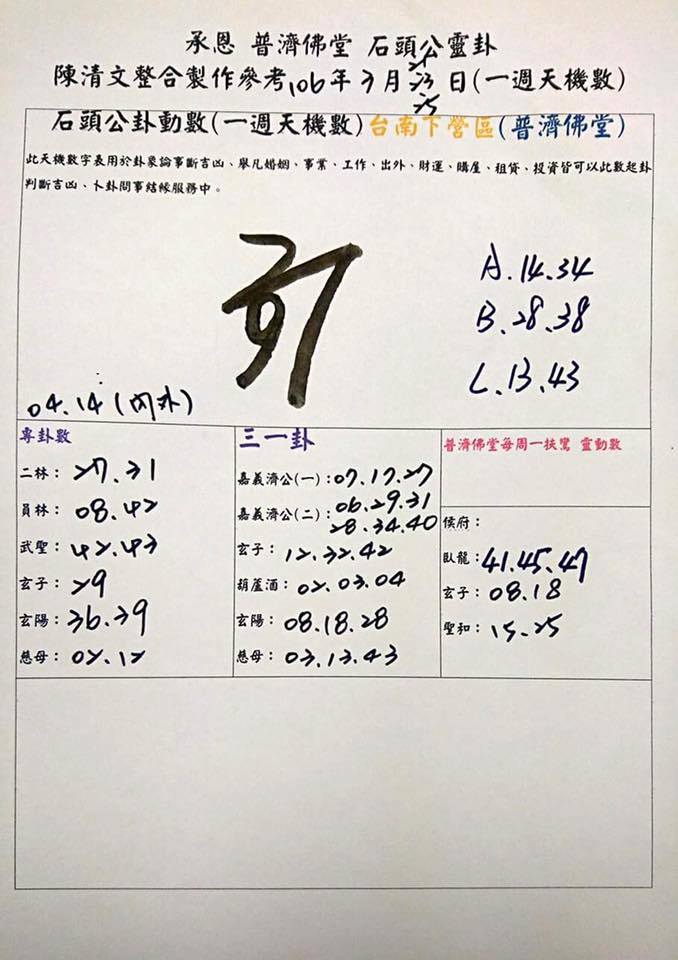 承恩 普濟佛堂 石頭公靈卦
陳清文整合製作參考106年7月23日(一週天機數)
25
石頭公卦動數(一週天機數)台南下營區(普濟佛堂)
此天機數字表用於卦象論事斷吉凶、舉凡婚姻、事業、工作、出外、財運、購屋、租賃、投資皆可以此數起卦
判斷吉凶、卜卦問事結緣服務中。
A.14.34
B.28.38
C.13.43
04.14(內外)
專卦數
二林：27.31
員林：08.42
武聖：42.43
玄子：29
玄陽：36.39
慈母：02.12
三一卦
嘉義濟公(一)：07.17.27
嘉義濟公(二)：06.29.31
28.34.40
玄子：12.32.42
葫蘆酒：02.03.04
玄陽：08.18.28
慈母：03.13.43
普濟佛堂每周一扶鸞 靈動數
侯府：
臥龍：41.45.47
玄子：08.18
聖和：15.25